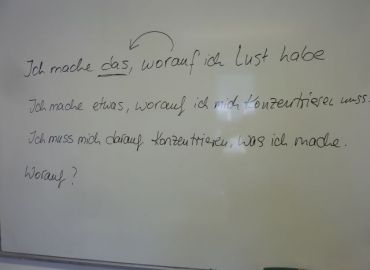 Ich mache das, worauf ich Lust habe
Ich mache etwas, worauf ich mich konzentrieren muss.
Ich muss mich darauf konzentrieren, was ich mache.
Worauf?